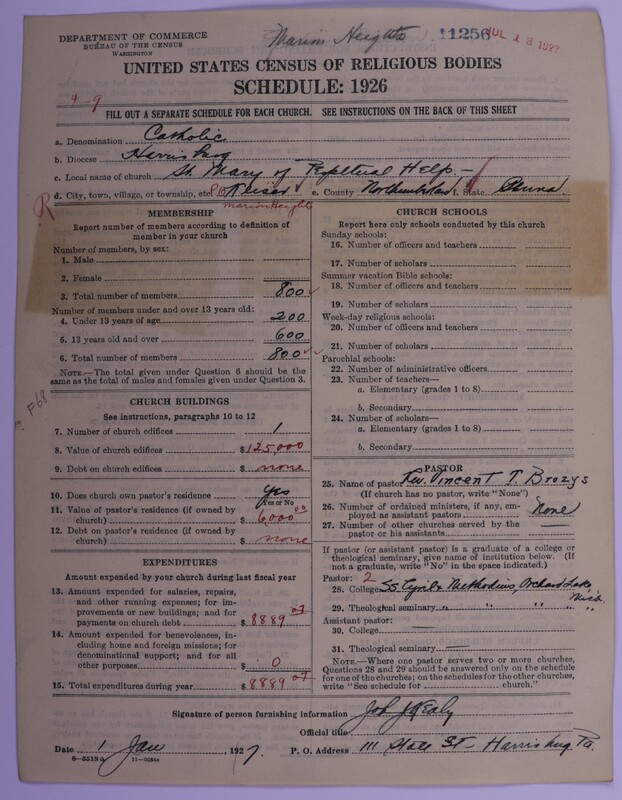 DEPARTMENT OF COMMERCE
BUREAU OF THE CENSUS
WASHINGTON
Marion Heights
11256
JUL 13 1927
UNITED STATES CENSUS OF RELIGIOUS BODIES
SCHEDULE: 1926
4 9
FILL OUT A SEPARATE SCHEDULE FOR EACH CHURCH. SEE INSTRUCTIONS ON THE BACK OF THIS SHEET
a. Denomination Catholic
b. Diocese Harrisburg
c. Local name of church St. Mary of Perpetual Help -
d. City, town, village, or township, etc. Keiser e. County Northumberland f. State Penna.
R
Marion Heights
MEMBERSHIP
Report number of members according to definition of
member in your church
Number of members, by sex:
1. Male
2. Female
3. Total number of members 800
Number of members under and over 13 years old:
4. Under 13 years of age 200
5. 13 years old and over 600
6. Total number of members 800
NOTE.—The total given under Question 6 should be
the same as the total of males and females given under Question 3.
F68
CHURCH BUILDINGS
See instructions, paragraphs 10 to 12
7. Number of church edifices 1
8. Value of church edifices $125000
9. Debt on church edifices $ none
10. Does church own pastor's residence yes
Yes or No
11. Value of pastor's residence (if owned by
church) $ 6000 00
12. Debt on pastor's residence (if owned by
church) $ none
EXPENDITURES
Amount expended by your church during last fiscal year
13. Amount expended for salaries, repairs,
and other running expenses; for im-
provements or new buildings; and for
payments on church debt $ 8889 07
14. Amount expended for benevolences, in-
cluding home and foreign missions; for
denominational support; and for all
other purposes $ 0
15. Total expenditures during year $ 8889 07
CHURCH SCHOOLS
Report here only schools conducted by this church
Sunday schools:
16. Number of officers and teachers
17. Number of scholars
Summer vacation Bible schools:
18. Number of officers and teachers
19. Number of scholars
Week-day religious schools:
20. Number of officers and teachers
21. Number of scholars
Parochial schools:
22. Number of administrative officers
23. Number of teachers—
a. Elementary (grades 1 to 8)
b. Secondary
24. Number of scholars—
a. Elementary (grades 1 to 8)
b. Secondary
PASTOR
25. Name of pastor Rev. Vincent T. Brozys
(If church has no pastor, write "None")
26. Number of ordained ministers, if any, em-
ployed as assistant pastors None
27. Number of other churches served by the
pastor or his assistants —
If pastor (or assistant pastor) is a graduate of a college or
theological seminary, give name of institution below. (If
not a graduate, write "No" in the space indicated.)
Pastor: 2
28. College SS Cyril & Methodius, Orchard Lake
Mich.
29. Theological seminary " " " "
Assistant pastor:
30. College —
31. Theological seminary —
NOTE.—Where one pastor serves two or more churches,
Questions 28 and 29 should be answered only on the schedule
for one of the churches; on the schedules for the other churches,
write "See schedule for church."
Signature of person furnishing information Jos J Healy
Official title
Date 1 Jan, 1927. P. O. Address 111 State St - Harrisburg Pa.
8—5519a 11—9284a